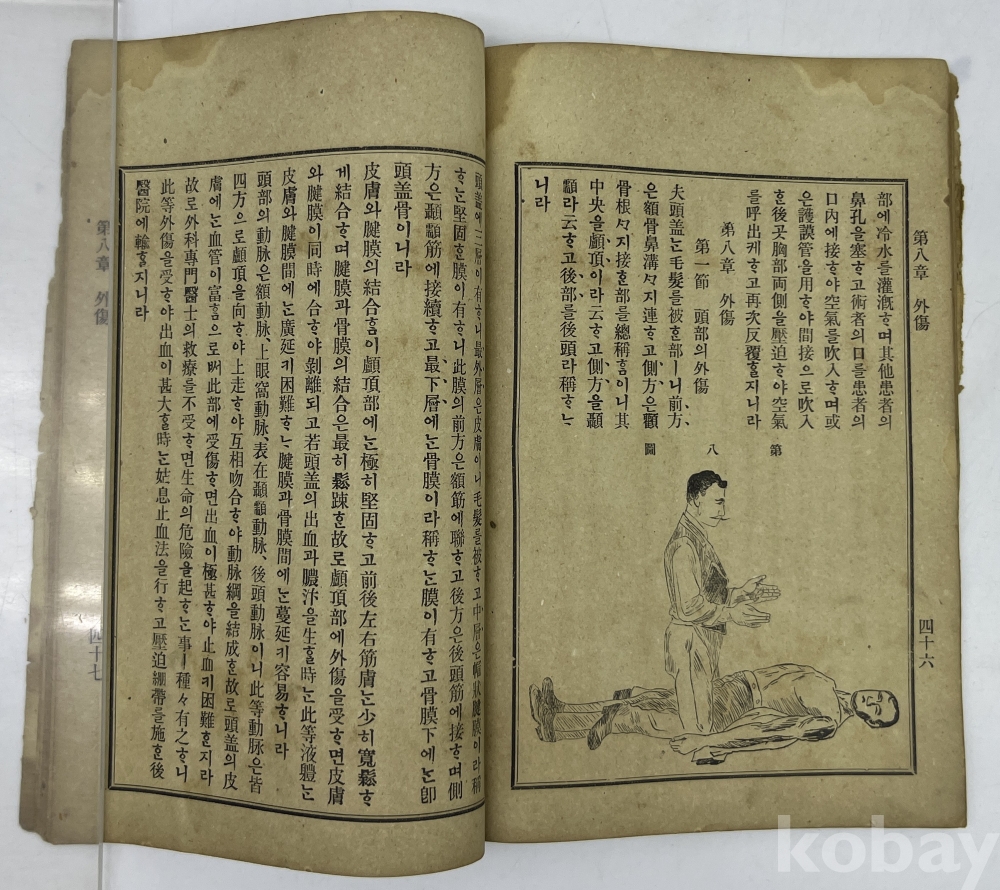 第八章 外傷
四十六
部에冷水를灌漑ᄒᆞ며其他患者의
鼻孔을塞ᄒᆞ고術者의口를患者의
口內에接ᄒᆞ야空氣를吹入ᄒᆞ며或
은護謨管을用ᄒᆞ야間接으로吹入
ᄒᆞᆫ後곳胸部両側을壓迫ᄒᆞ야空氣
를呼出케ᄒᆞ고再次反覆ᄒᆞᆯ지니라
第八章 外傷
第一節 頭部의外傷
夫頭盖ᄂᆞᆫ毛髮를被ᄒᆞᆫ部ㅣ니前方
은額骨鼻溝ᄭᆞ지連ᄒᆞ고側方은顴
骨根ᄭᆞ지接ᄒᆞᆫ部를總稱ᄒᆞᆷ이니其
中央을顱頂이라云ᄒᆞ고側方을顳
顬라云ᄒᆞ고後部를後頭라稱ᄒᆞᄂᆞ
니라
第八圖
頭盖에三層이有ᄒᆞ니最外層은皮膚이니毛髮를被ᄒᆞ고中層은帽狀腱膜이라稱
ᄒᆞᄂᆞᆫ堅固ᄒᆞᆫ膜이有ᄒᆞ니此膜의前方은額筋에聯ᄒᆞ고後方은後頭筋에接ᄒᆞ며側
方은顳顬筋에接續ᄒᆞ고最下層에ᄂᆞᆫ骨膜이라稱ᄒᆞᄂᆞᆫ膜이有ᄒᆞ고骨膜下에ᄂᆞᆫ卽
頭盖骨이니라
皮膚와腱膜의結合ᄒᆞᆷ이顱頂部에ᄂᆞᆫ極히堅固ᄒᆞ고前後左右筋膚ᄂᆞᆫ少히寬鬆ᄒᆞ
게結合ᄒᆞ며腱膜과骨膜의結合은最히鬆踈ᄒᆞᆫ故로顱頂部에外傷을受ᄒᆞ면皮膚
와腱膜이同時에合ᄒᆞ야剝離되고若頭盖의出血과膿汁을生ᄒᆞᆯ時ᄂᆞᆫ此等液體ᄂᆞᆫ
皮膚와腱膜間에ᄂᆞᆫ廣延키困難ᄒᆞᄂᆞ腱膜과骨膜間에ᄂᆞᆫ蔓延키容易ᄒᆞ니라
頭部의動脉은額動脉、上眼窩動脉、表在顳顬動脉、後頭動脉이니此等動脉은皆
四方으로顱頂을向ᄒᆞ야上走ᄒᆞ야互相吻合ᄒᆞ야動脉綱을結成ᄒᆞᆫ故로頭盖의皮
膚에ᄂᆞᆫ血管이富ᄒᆞᆷ으로ᄡᅥ此部에受傷ᄒᆞ면出血이極甚ᄒᆞ야止血키困難ᄒᆞᆫ지라
故로外科專門醫士의救療를不受ᄒᆞ면生命의危險을起ᄒᆞᄂᆞᆫ事ㅣ種々有之ᄒᆞ니
此等外傷을受ᄒᆞ야出血이甚大ᄒᆞᆯ時ᄂᆞᆫ姑息止血法을行ᄒᆞ고壓迫繃帶를施ᄒᆞᆫ後
醫院에輸ᄒᆞᆯ지니라
第八章 外傷
四十七
kobay